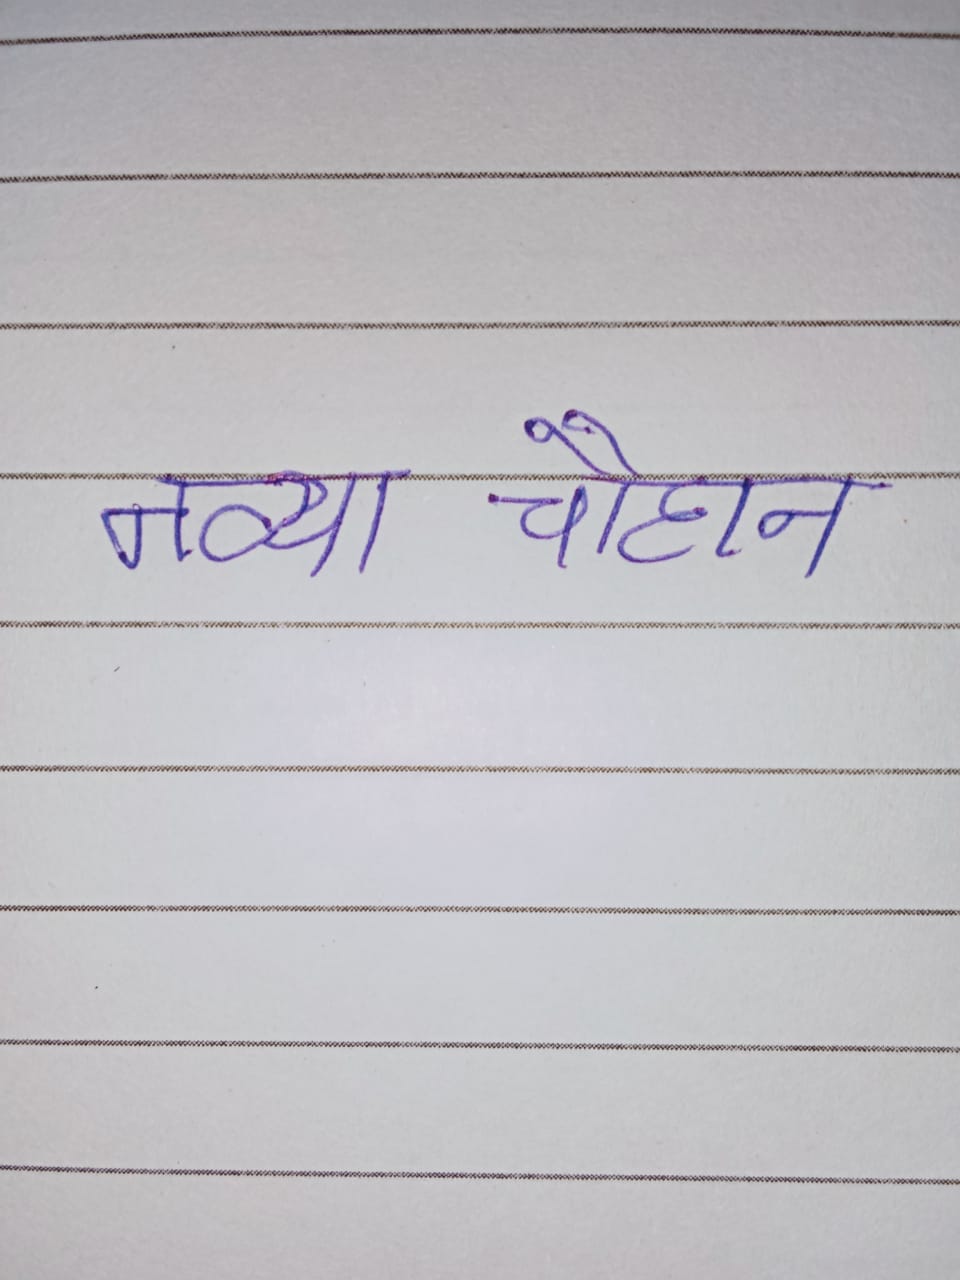 नव्या चौहान